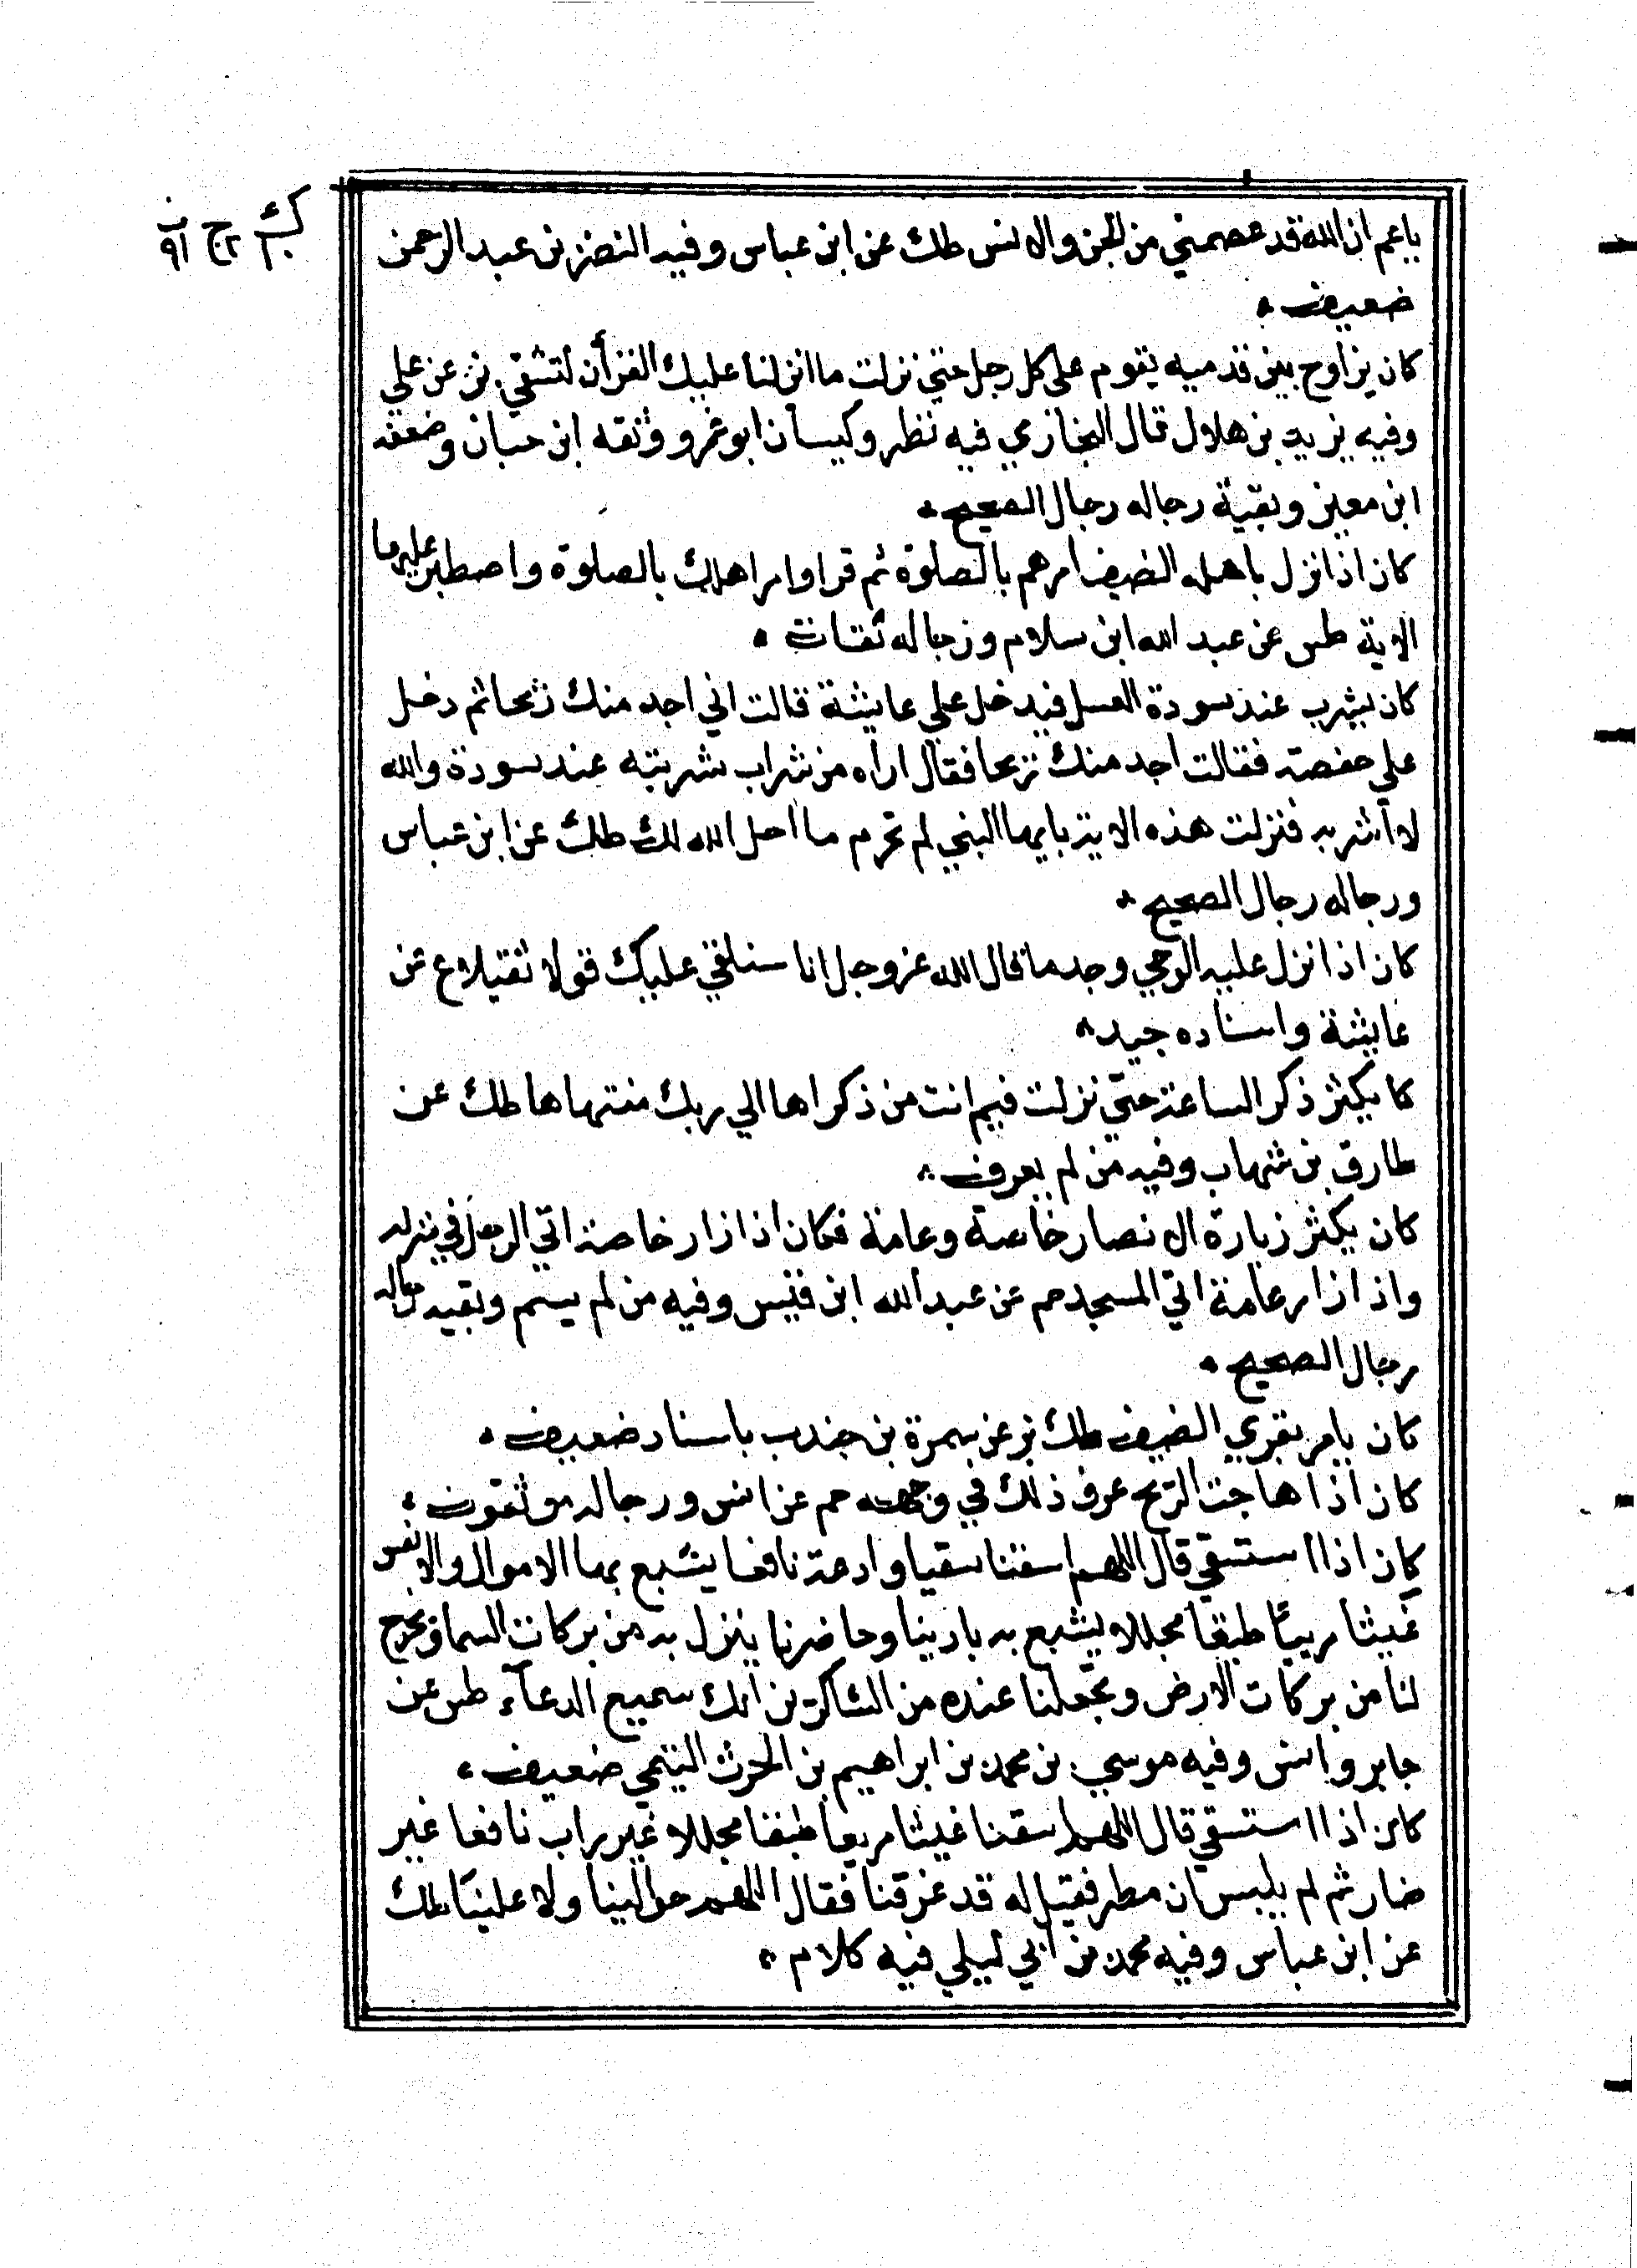 ياعم ان الله قد عصمني من الجن والانس طك عن ابن عباس وفيه النضر بن عبد الرحمن
ضعيف
كان يراوح بين قدميه يقوم على كل رجل حتي نزلت ما انزلنا عليك القرأن لتشقي بز عن علي
وفيه يزيد بن هلال قال البخاري فيه نظر وكيسان ابو عمرو وثقه ابن حبان وضعفه
ابن معين وبقية رجاله رجال الصحيح
كان اذا نزل باهله الضيف امرهم بالصلوة ثم قرا وامر اهلك بالصلوة واصطبر عليها
الاية طس عن عبد الله ابن سلام ورجاله ثقات
كان يشرب عند سودة العسل فيدخل علي عايشة قالت اني اجد منك ريحا ثم دخل
علي حفصة فقالت اجد منك ريحا فقال اراه من شراب شربته عند سودة والله
لا اشربه فنزلت هذه الاية يايها النبي لم تحرم ما احل الله لك طك عن ابن عباس
ورجاله رجال الصحيح
كان اذا نزل عليه الوحي وجد ما قال الله عزوجل انا سنلقي عليك قولا ثقيلا ع عن
عايشة واسناده جيد
كا يكثر ذكر الساعة حتي نزلت فيم انت من ذكراها الي ربك منتهاها طك عن
طارق بن شهاب وفيه من لم يعرف
كان يكثر زيارة الانصار خاصة وعامة فكان اذا زار خاصة اتي الرجل في منزله
واذا زار عامة اتي المسجد حم عن عبد الله ابن قيس وفيه من لم يسم وبقيه رجاله
رجال الصحيح
كان يامر بقري الضيف طك بز عن سمرة بن جندب باسناد ضعيف
كان اذا هاجت الريح عرف ذلك في وجهه حم عن انس ورجاله موثقون
كان اذا استسقي قال اللهم اسقنا سقيا وادعة نافعا يشبع بها الاموال والانفس
غيثا مريئا طبقا مجللا يشبع به بادينا وحاضرنا ينزل به من بركات السما ويخرج
لنا من بركات الارض وتجعلنا عنده من الشاكرين انك سميع الدعآء طس عن
جابر وانس وفيه موسي بن محمد بن ابراهيم بن الحرث التيمي ضعيف
كان اذا استسقي قال اللهم اسقنا غيثا مريعا طبقا مجللا غير راب نافعا غير
ضار ثم لم يلبس ان مطر فقيل له قد غرقنا فقال اللهم حوالينا ولا علينا طك
عن ابن عباس وفيه محمد بن ابي ليلي فيه كلام